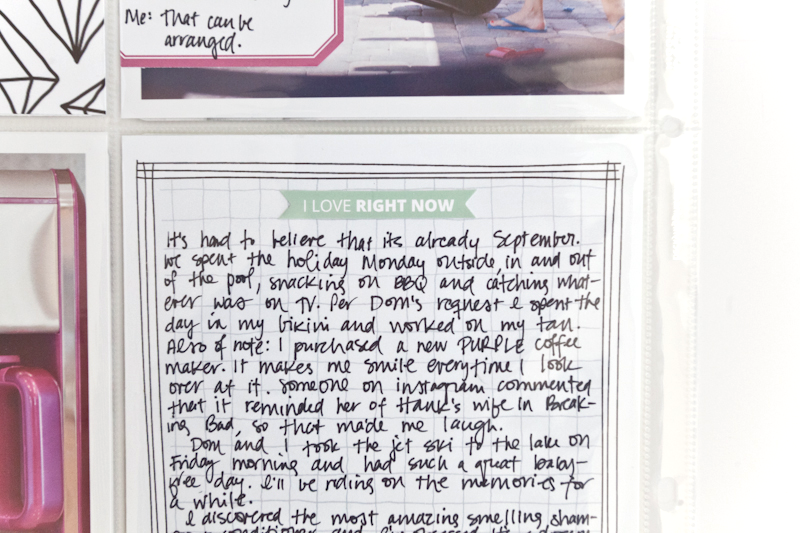 Me: That can be
arranged.
I LOVE RIGHT NOW
It's hard to believe that its already September.
We spent the holiday Monday outside, in and out
of the pool, snacking on BBQ and catching what-
ever was on TV. Per Dom's request I spent the
day in my bikini and worked on my tan.
Also of note: I purchased a new PURPLE coffee
maker. It makes me smile everytime I look
over at it. Someone on instagram commented
that it reminded her of Hank's wife in Break-
ing Bad, so that made me laugh.
Dom and I took the jet ski to the lake on
Friday morning and had such a great baby-
free day. I'll be riding on the memories for
a while.
I discovered the most amazing smelling sham-
conditioner and